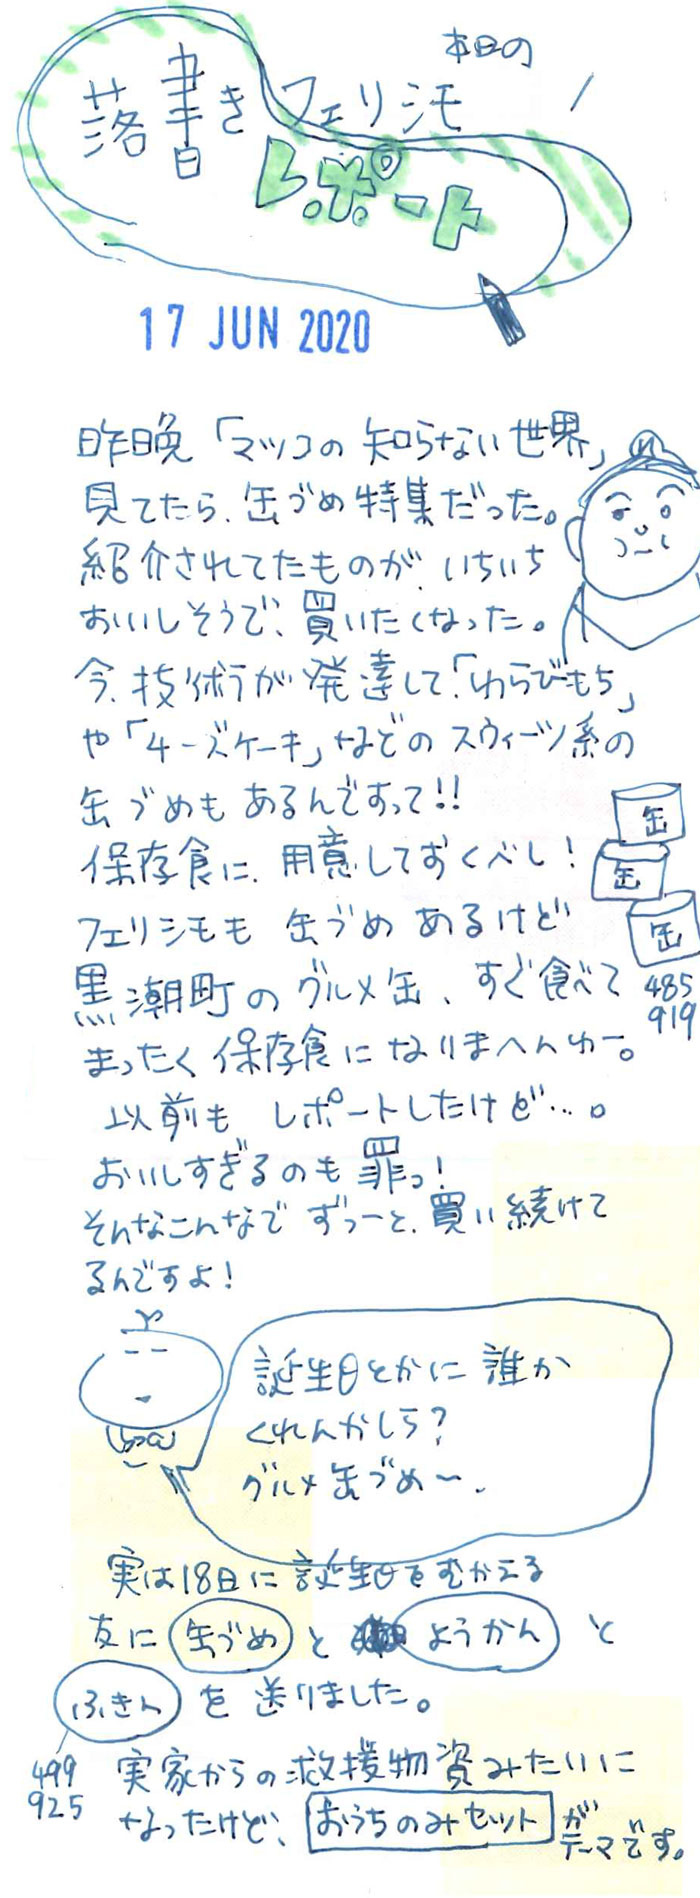 本日の
落書きフェリシモ
レポート
17 JUN 2020
昨晩「マツコの知らない世界」
見てたら、缶づめ特集だった。
紹介されてたものが、いちいち
おいしそうで、買いたくなった。
今、技術が発達して、「わらびもち」
や「チーズケーキ」などのスウィーツ系の
缶づめもあるんですって!!
保存食に、用意しておくべし!
缶
缶
缶
フェリシモも缶づめあるけど
黒潮町のグルメ缶、すぐ食べて
485
919
まったく保存食になりまへんわー。
以前もレポートしたけど…。
おいしすぎるのも罪っ!
そんなこんなでずっーと、買い続けて
るんですよ!
誕生日とかに誰か
くれんかしら?
グルメ缶づめ〜、
実は18日に誕生日をむかえる
友に缶づめとようかんと
ふきんを送りました。
499
925
実家からの救援物資みたいに
なったけど、おうちのみセットがテーマです。